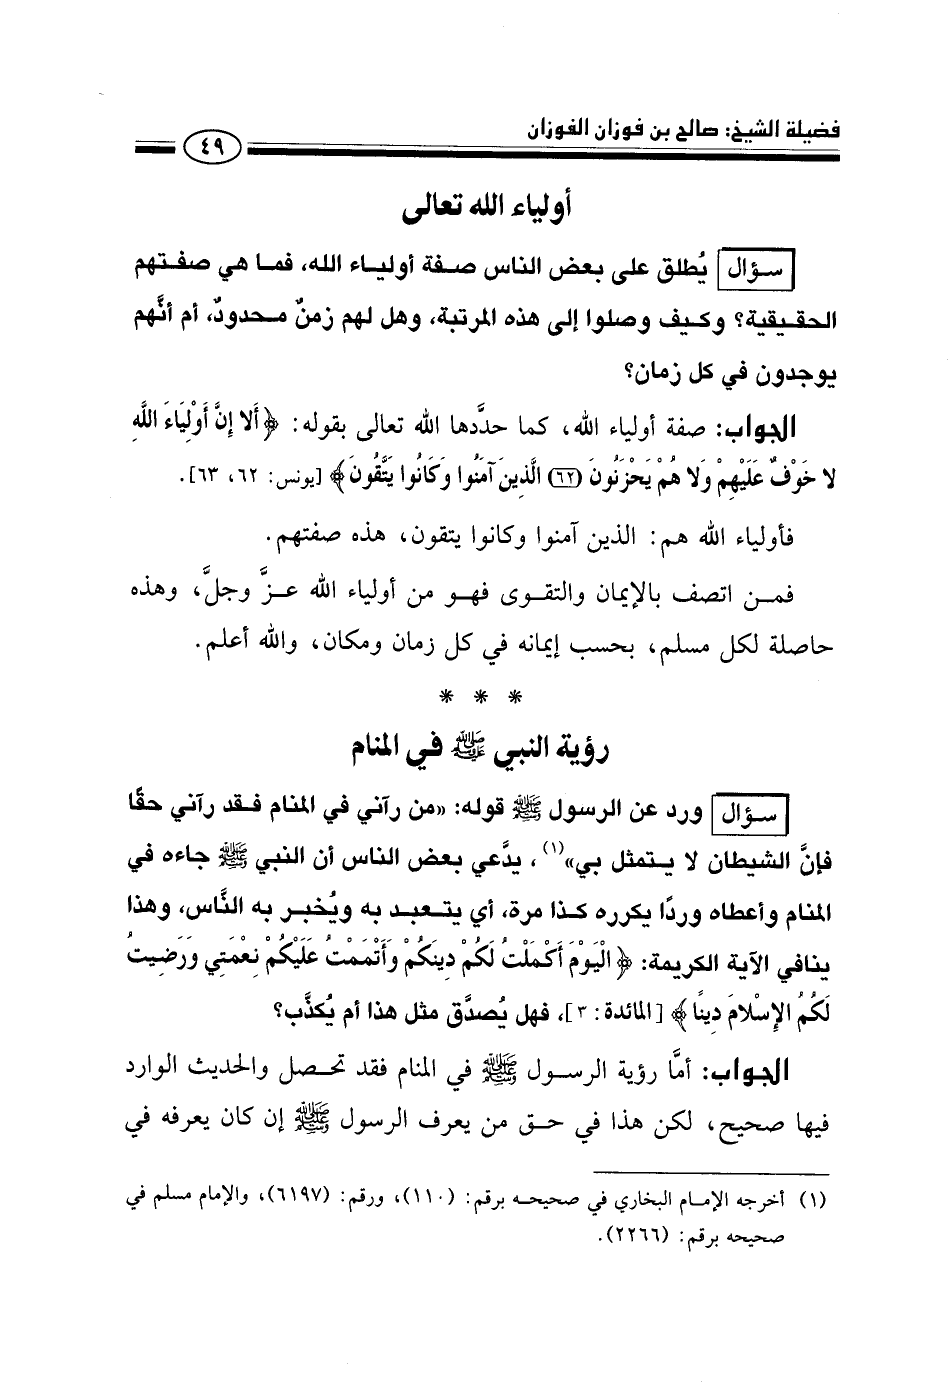 فضيلة الشيخ: صالح بن فوزان الفوزان
٤٩
أولياء الله تعالى
سؤال يُطلق على بعض الناس صفة أولياء الله، فما هي صفتهم
الحقيقية؟ وكيف وصلوا إلى هذه المرتبة، وهل لهم زمنٌ محدودٌ، أم أنَّهم
يوجدون في كل زمان؟
الجواب: صفة أولياء الله، كما حدَّدها الله تعالى بقوله: ﴿أَلا إِنَّ أَوْلِيَاءَ اللَّهِ
لا خَوْفٌ عَلَيْهِمْ وَلا هُمْ يَحْزَنُونَ (٦٢) الَّذِينَ آمَنُوا وَكَانُوا يَتَّقُونَ﴾ [يونس: ٦٢، ٦٣].
فأولياء الله هم: الذين آمنوا وكانوا يتقون، هذه صفتهم.
فمن اتصف بالإيمان والتقوى فهو من أولياء الله عزَّ وجلَّ، وهذه
حاصلة لكل مسلم، بحسب إيمانه في كل زمان ومكان، والله أعلم.
* * *
رؤية النبي ﷺ في المنام
سؤال ورد عن الرسول ﷺ قوله: «من رآني في المنام فقد رآني حقًا
فإنَّ الشيطان لا يتمثل بي»(١)، يدَّعي بعض الناس أن النبي ﷺ جاءه في
المنام وأعطاه وردًا يكرره كذا مرة، أي يتعبد به ويُخبر به النَّاس، وهذا
ينافي الآية الكريمة: ﴿الْيَوْمَ أَكْمَلْتُ لَكُمْ دِينَكُمْ وَأَتْمَمْتُ عَلَيْكُمْ نِعْمَتِي وَرَضِيتُ
لَكُمُ الإِسْلامَ دِينًا﴾ [المائدة: ٣]، فهل يُصدَّق مثل هذا أم يُكذَّب؟
الجواب: أمَّا رؤية الرسول ﷺ في المنام فقد تحصل والحديث الوارد
فيها صحيح، لكن هذا في حق من يعرف الرسول ﷺ إن كان يعرفه في
(١) أخرجه الإمام البخاري في صحيحه برقم: (١١٠)، ورقم: (٦١٩٧)، والإمام مسلم في
صحيحه برقم: (٢٢٦٦).